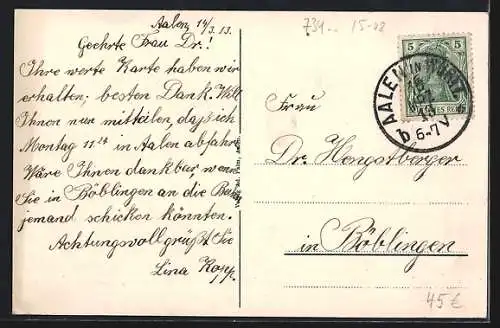 Aalen, 14/3.13.
Geehrte Frau Dr.!
Ihre werte Karte haben wir
erhalten, besten Dank. Will
Ihnen nur mitteilen, daß ich
Montag 11 24 in Aalen abfahre
Wäre Ihnen dankbar, wenn
Sie in Böblingen an die Bahn
jemand schicken könnten.
Achtungsvoll grüßt Sie
Lina Kopp.
734.. 15-08
5 5
AALEN in WÜRTT.
b 6-7V
Frau
Dr. Hengstberger
in Böblingen
45 €